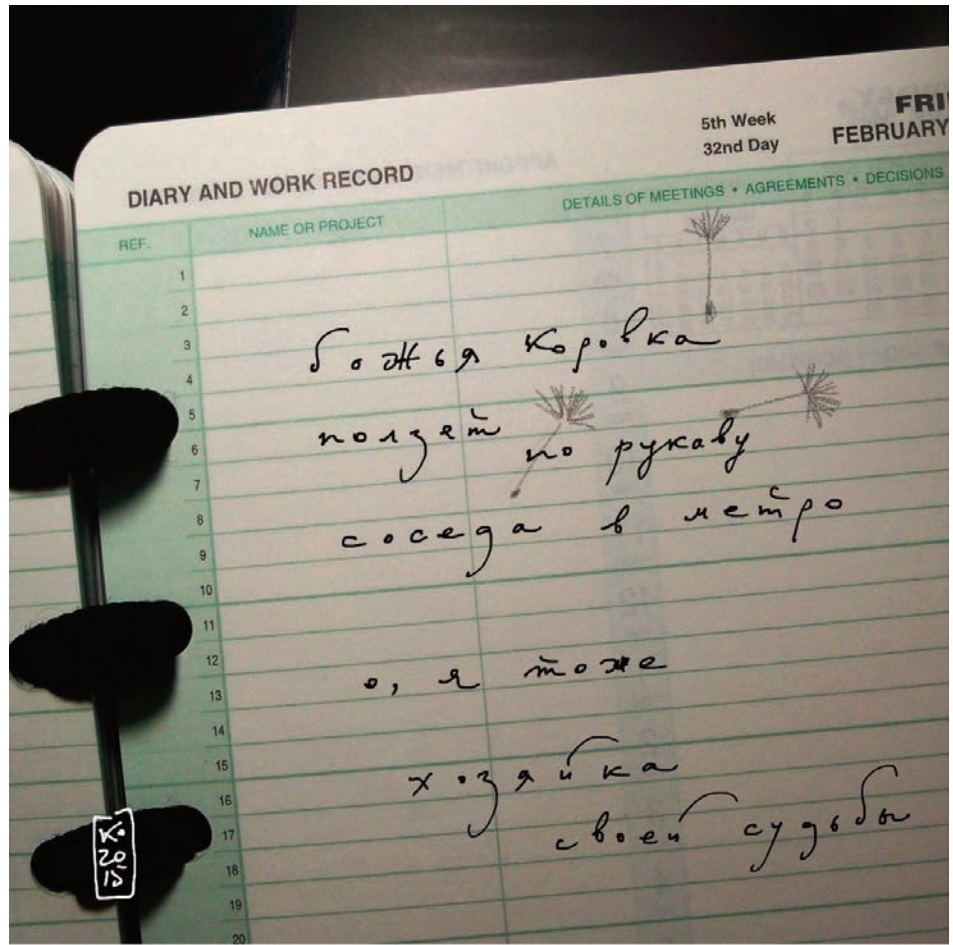 5th Week
32nd Day
FRI
FEBRUARY
DIARY AND WORK RECORD
REF.
NAME OR PROJECT
DETAILS OF MEETINGS • AGREEMENTS • DECISIONS
1
2
3
4
5
6
7
8
9
10
11
12
13
14
15
16
17
18
19
20
божья коровка
ползет по рукаву
соседа в метро
о, я тоже
хозяйка
своей судьбы
К.
20
15